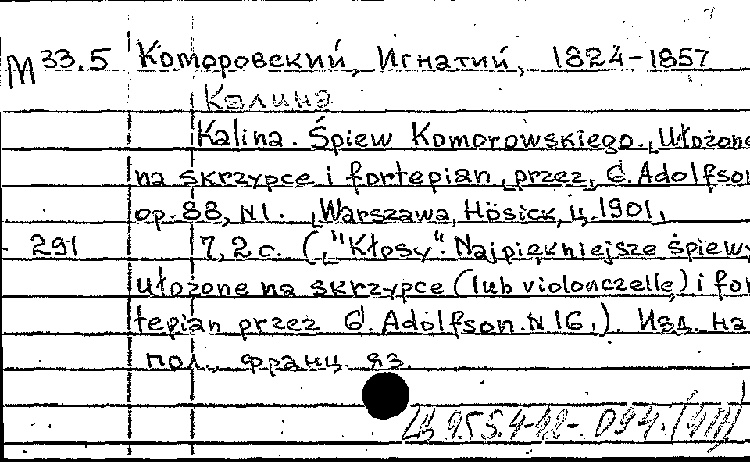 М 33.5 Коморовский, Игнатий, 1824-1857
Калина
Kalina. Śpiew Komorowskiego. Ułożone
na skrzypce i fortepian, przez, G. Adolfson
op. 88, N1. Warszawa, Hösick, ц. 1901.
291 7, 2 с. ("Kłosy". Najpiękniejsze śpiewy
ułożone na skrzypce (lub violonczellę) i for
tepian przez G. Adolfson. N 16.). Изд. на
пол., франц. яз.